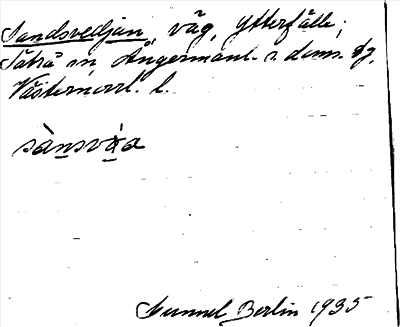 Sandsvedjan, väg, Ytterfälle;
Säbrå sn, Ångermanl. s. doms. tg,
Västernorrl. l.
sànsvi̯a
Gunnel Berlin 1935